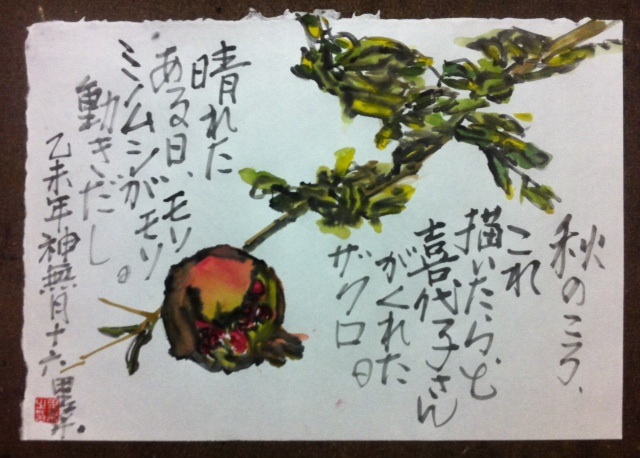 秋のころ、
これ
描いたら、と
喜代子さん
がくれた
ザクロ日
晴れた
ある日、モソ
ミノムシがモソ
動きだし。
乙未年神無月十六